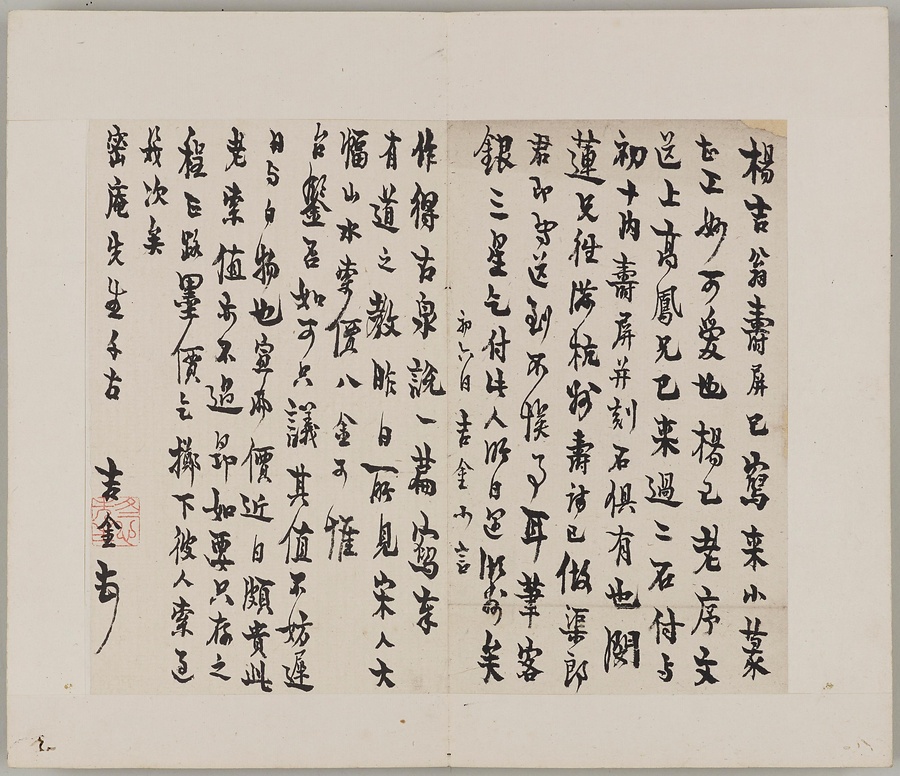 楊吉翁壽屏已寫來小篆
甚工妙可愛也楊已老序文
送上高鳳兄已來過二石付与
初十内壽屏并刻石俱有也闕
蓮兄往滿杭州壽詩已做渠郎
君即当送到不悞事耳筆客
銀三星乞付此人明日還湖州矣
初六日 吉金小言
作得古泉說一篇寫奉
有道之教昨日一所見宋人大
幅山水索價八金不惟
台鑒若如可只議其值不妨遲
日与白物也宣爐價近日頗貴此
老索值亦不過昂如要只存之
程正路墨價乞擲下彼人索过
幾次矣
密庵先生千古
吉金